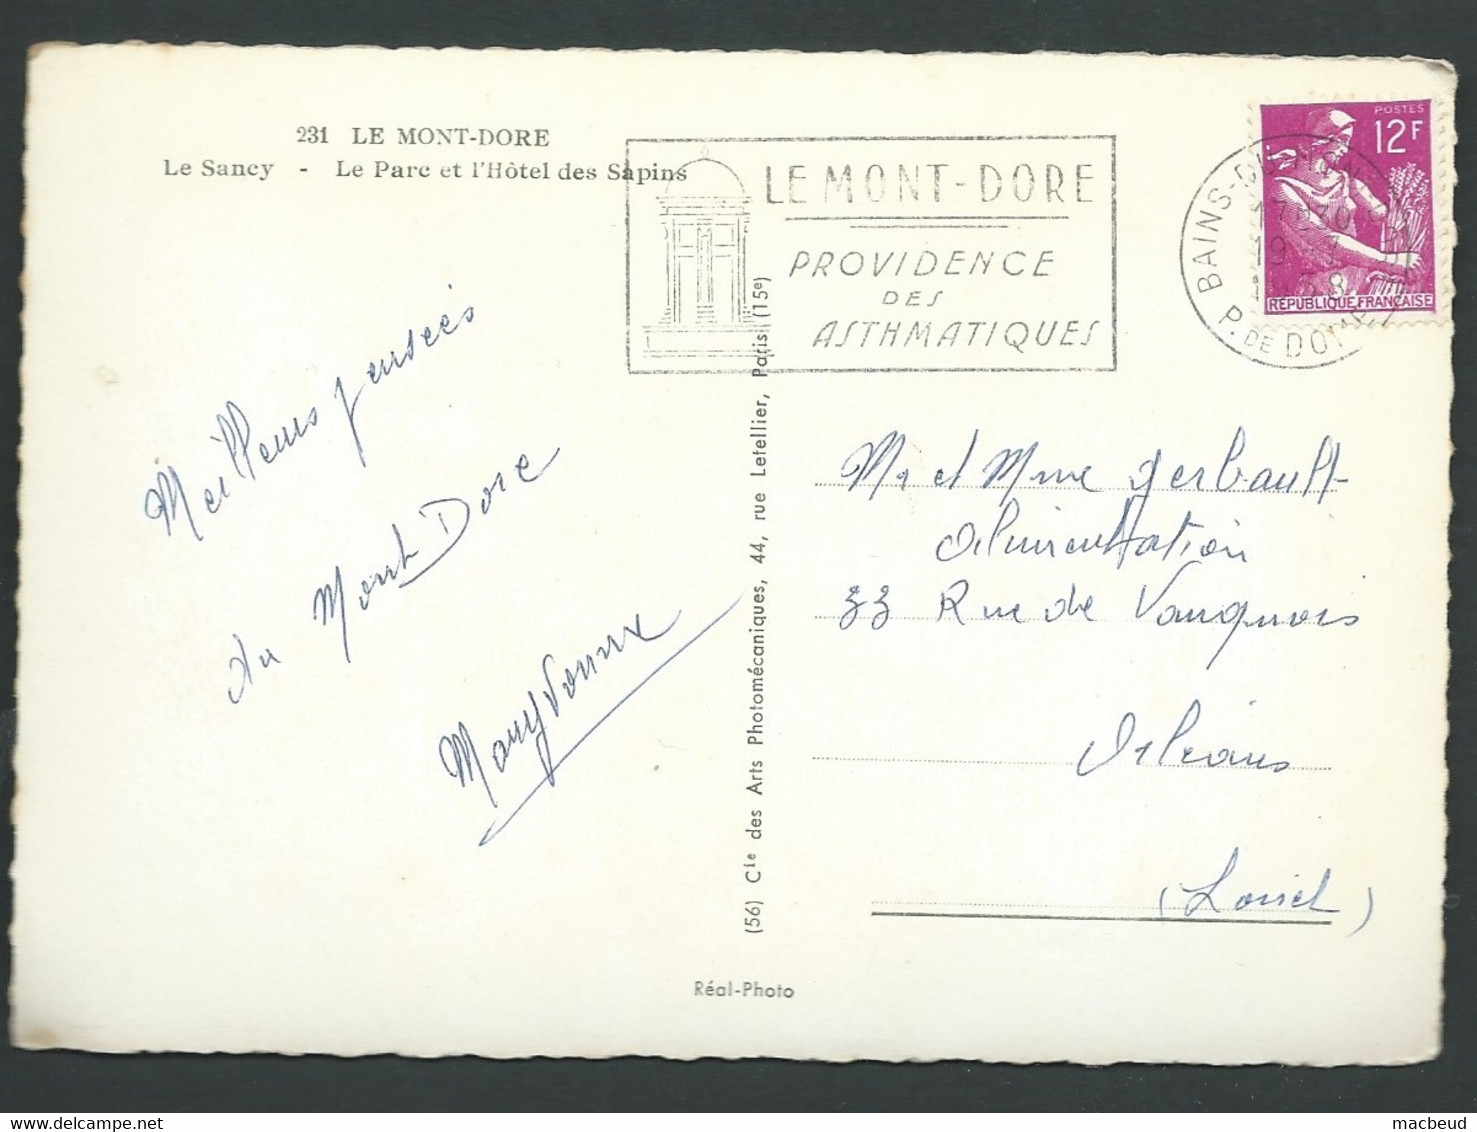 231 LE MONT-DORE
Le Sancy - Le Parc et l'Hôtel des Sapins
LE MONT-DORE
PROVIDENCE
DES
ASTHMATIQUES
POSTES
12F
REPUBLIQUE FRANÇAISE
BAINS-DU-MONT
P. DE DOME
Meilleurs pensées
du Mont Dore
Mr et Mme Gerbault
Alimentation
33 Rue de Vauquois
Orléans
(Loiret)
(56) Cie des Arts Photomécaniques, 44, rue Letellier, Paris (15e)
Réal-Photo
macbeud